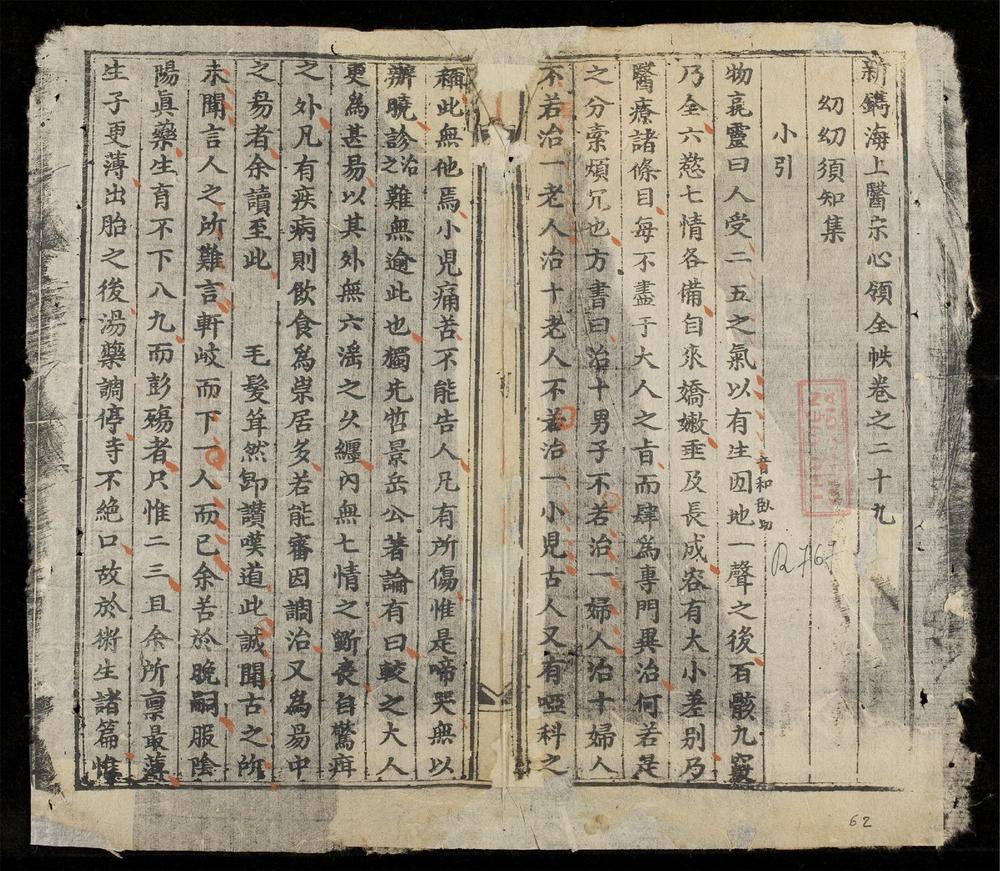 新鐫海上醫宗心領全帙卷之二十九
幼幼須知集
小引
物最靈曰人受二五之氣以有生囡地一聲之後百骸九竅
音和臥切
乃全六慾七情各備自來嬌嫩垂及長成容有大小差別乃
醫療諸條目每不盡于大人之旨而肆為專門異治何若是
之分棄煩冗也方書曰治十男子不若治一婦人治十婦人
不若治一老人治十老人不若治一小兒古人又有啞科之
稱此無他焉小兒痛苦不能告人凡有所傷惟是啼哭無以
辦曉診治之難無逾此也獨先哲景岳公著論有曰較之大人
更為甚易以其外無六淫之久纏內無七情之斷喪自驚疳
之外凡有疾病則飲食為祟居多若能審因調治又為易中
之易者余讀至此 毛髮耸然卽讚嘆道此誠聞古之所
未聞言人之所難言軒岐而下一人而已余苦於晚嗣服陰
陽真藥生育不下八九而彭殤者尺惟二三且余所稟最薄
生子更薄出胎之後湯藥調停寺不絕口故於術生諸篇惟
62